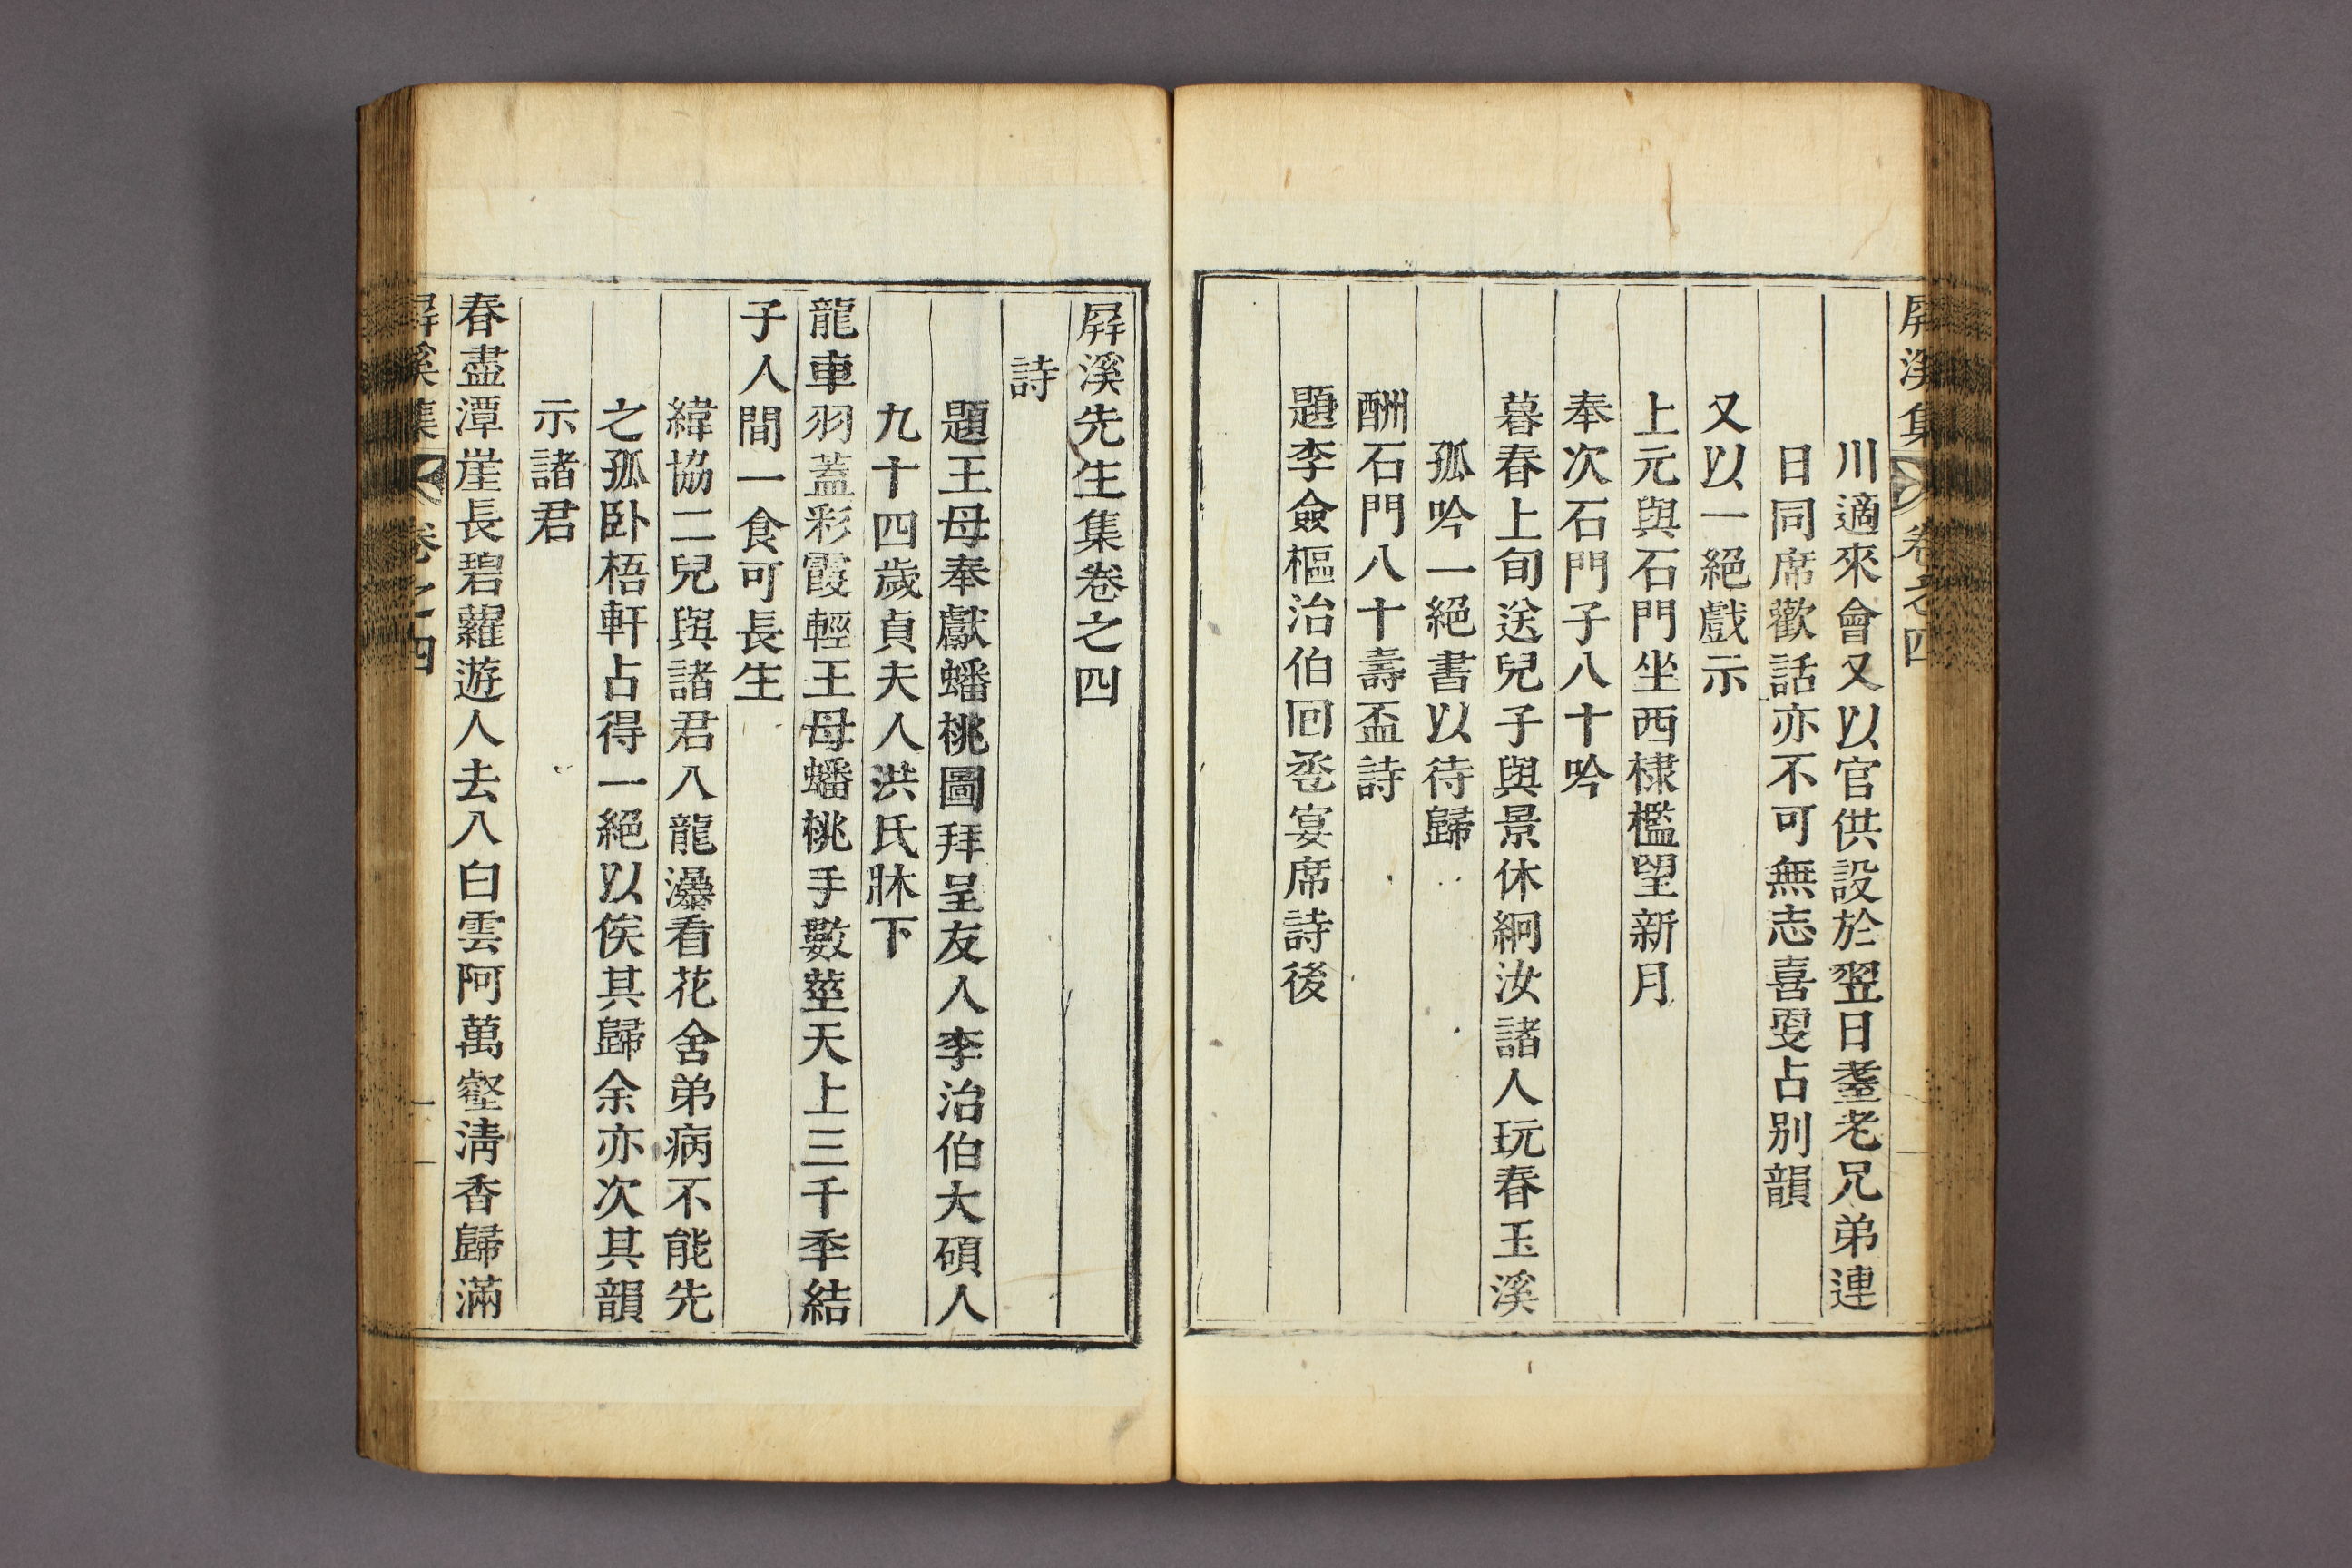 屛溪集 卷之四
川適來會又以官供設於翌日耋老兄弟連
日同席歡話亦不可無志喜更占別韻
又以一絕戲示
上元與石門坐西棣檻望新月
奉次石門子八十吟
暮春上旬送兒子與景休絅汝諸人玩春玉溪
孤吟一絕書以待歸
酬石門八十壽盃詩
題李僉樞治伯回巹宴席詩後
屛溪先生集卷之四
詩
題王母奉獻蟠桃圖拜呈友人李治伯大碩人
九十四歲貞夫人洪氏牀下
龍車羽蓋彩霞輕王母蟠桃手數莖天上三千秊結
子人間一食可長生
緯協二兒與諸君入龍瀑看花舍弟病不能先
之孤卧梧軒占得一絕以俟其歸余亦次其韻
示諸君
春盡潭崖長碧蘿遊人去入白雲阿萬壑淸香歸滿
屛溪集 卷之四 一